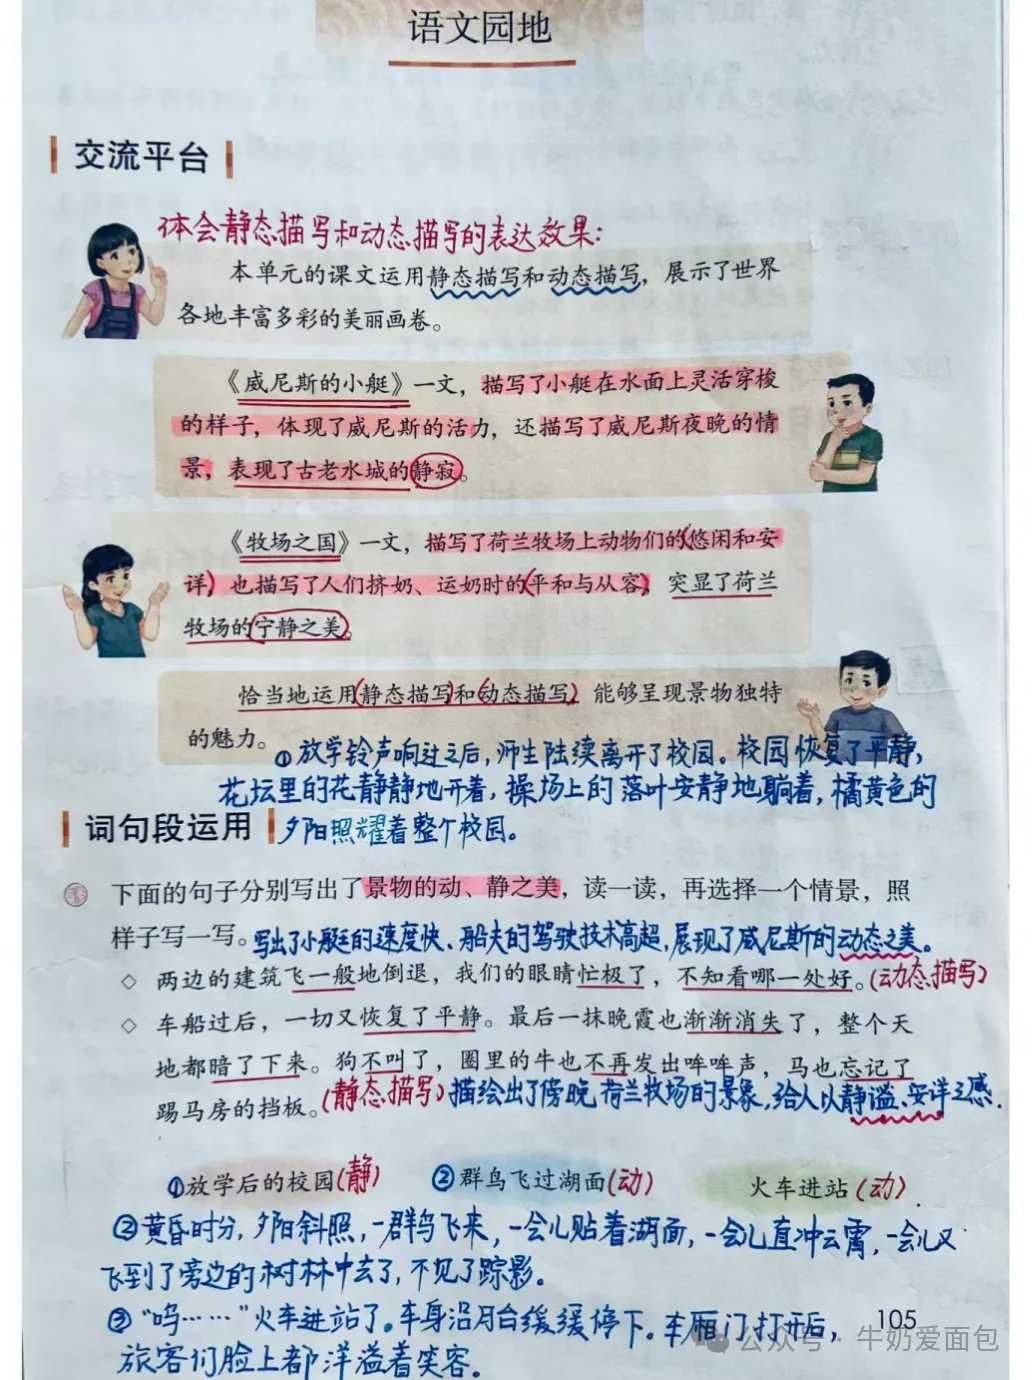 语文园地
交流平台
体会静态描写和动态描写的表达效果：
本单元的课文运用静态描写和动态描写，展示了世界
各地丰富多彩的美丽画卷。
《威尼斯的小艇》一文，描写了小艇在水面上灵活穿梭
的样子，体现了威尼斯的活力，还描写了威尼斯夜晚的情
景，表现了古老水城的静寂。
《牧场之国》一文，描写了荷兰牧场上动物们的悠闲和安
详，也描写了人们挤奶、运奶时的平和与从容，突显了荷兰
牧场的宁静之美。
恰当地运用静态描写和动态描写，能够呈现景物独特
的魅力。
①放学铃声响过之后，师生陆续离开了校园。校园恢复了平静，
花坛里的花静静地开着，操场上的落叶安静地躺着，橘黄色的
夕阳照耀着整个校园。
词句段运用
下面的句子分别写出了景物的动、静之美，读一读，再选择一个情景，照
样子写一写。
写出了小艇的速度快、船夫的驾驶技术高超，展现了威尼斯的动态之美。
◇ 两边的建筑飞一般地倒退，我们的眼睛忙极了，不知看哪一处好。(动态描写)
◇ 车船过后，一切又恢复了平静。最后一抹晚霞也渐渐消失了，整个天
地都暗了下来。狗不叫了，圈里的牛也不再发出哞哞声，马也忘记了
踢马房的挡板。(静态描写)描绘出了傍晚荷兰牧场的景象，给人以静谧、安详之感.
①放学后的校园(静) ②群鸟飞过湖面(动) 火车进站(动)
②黄昏时分，夕阳斜照，一群鸟飞来，一会儿贴着湖面，一会儿直冲云霄，一会儿又
飞到了旁边的树林中去了，不见了踪影。
③“呜……”火车进站了。车身沿月台缓缓停下。车厢门打开后，
旅客们脸上都洋溢着笑容。
105
公众号 牛奶爱面包